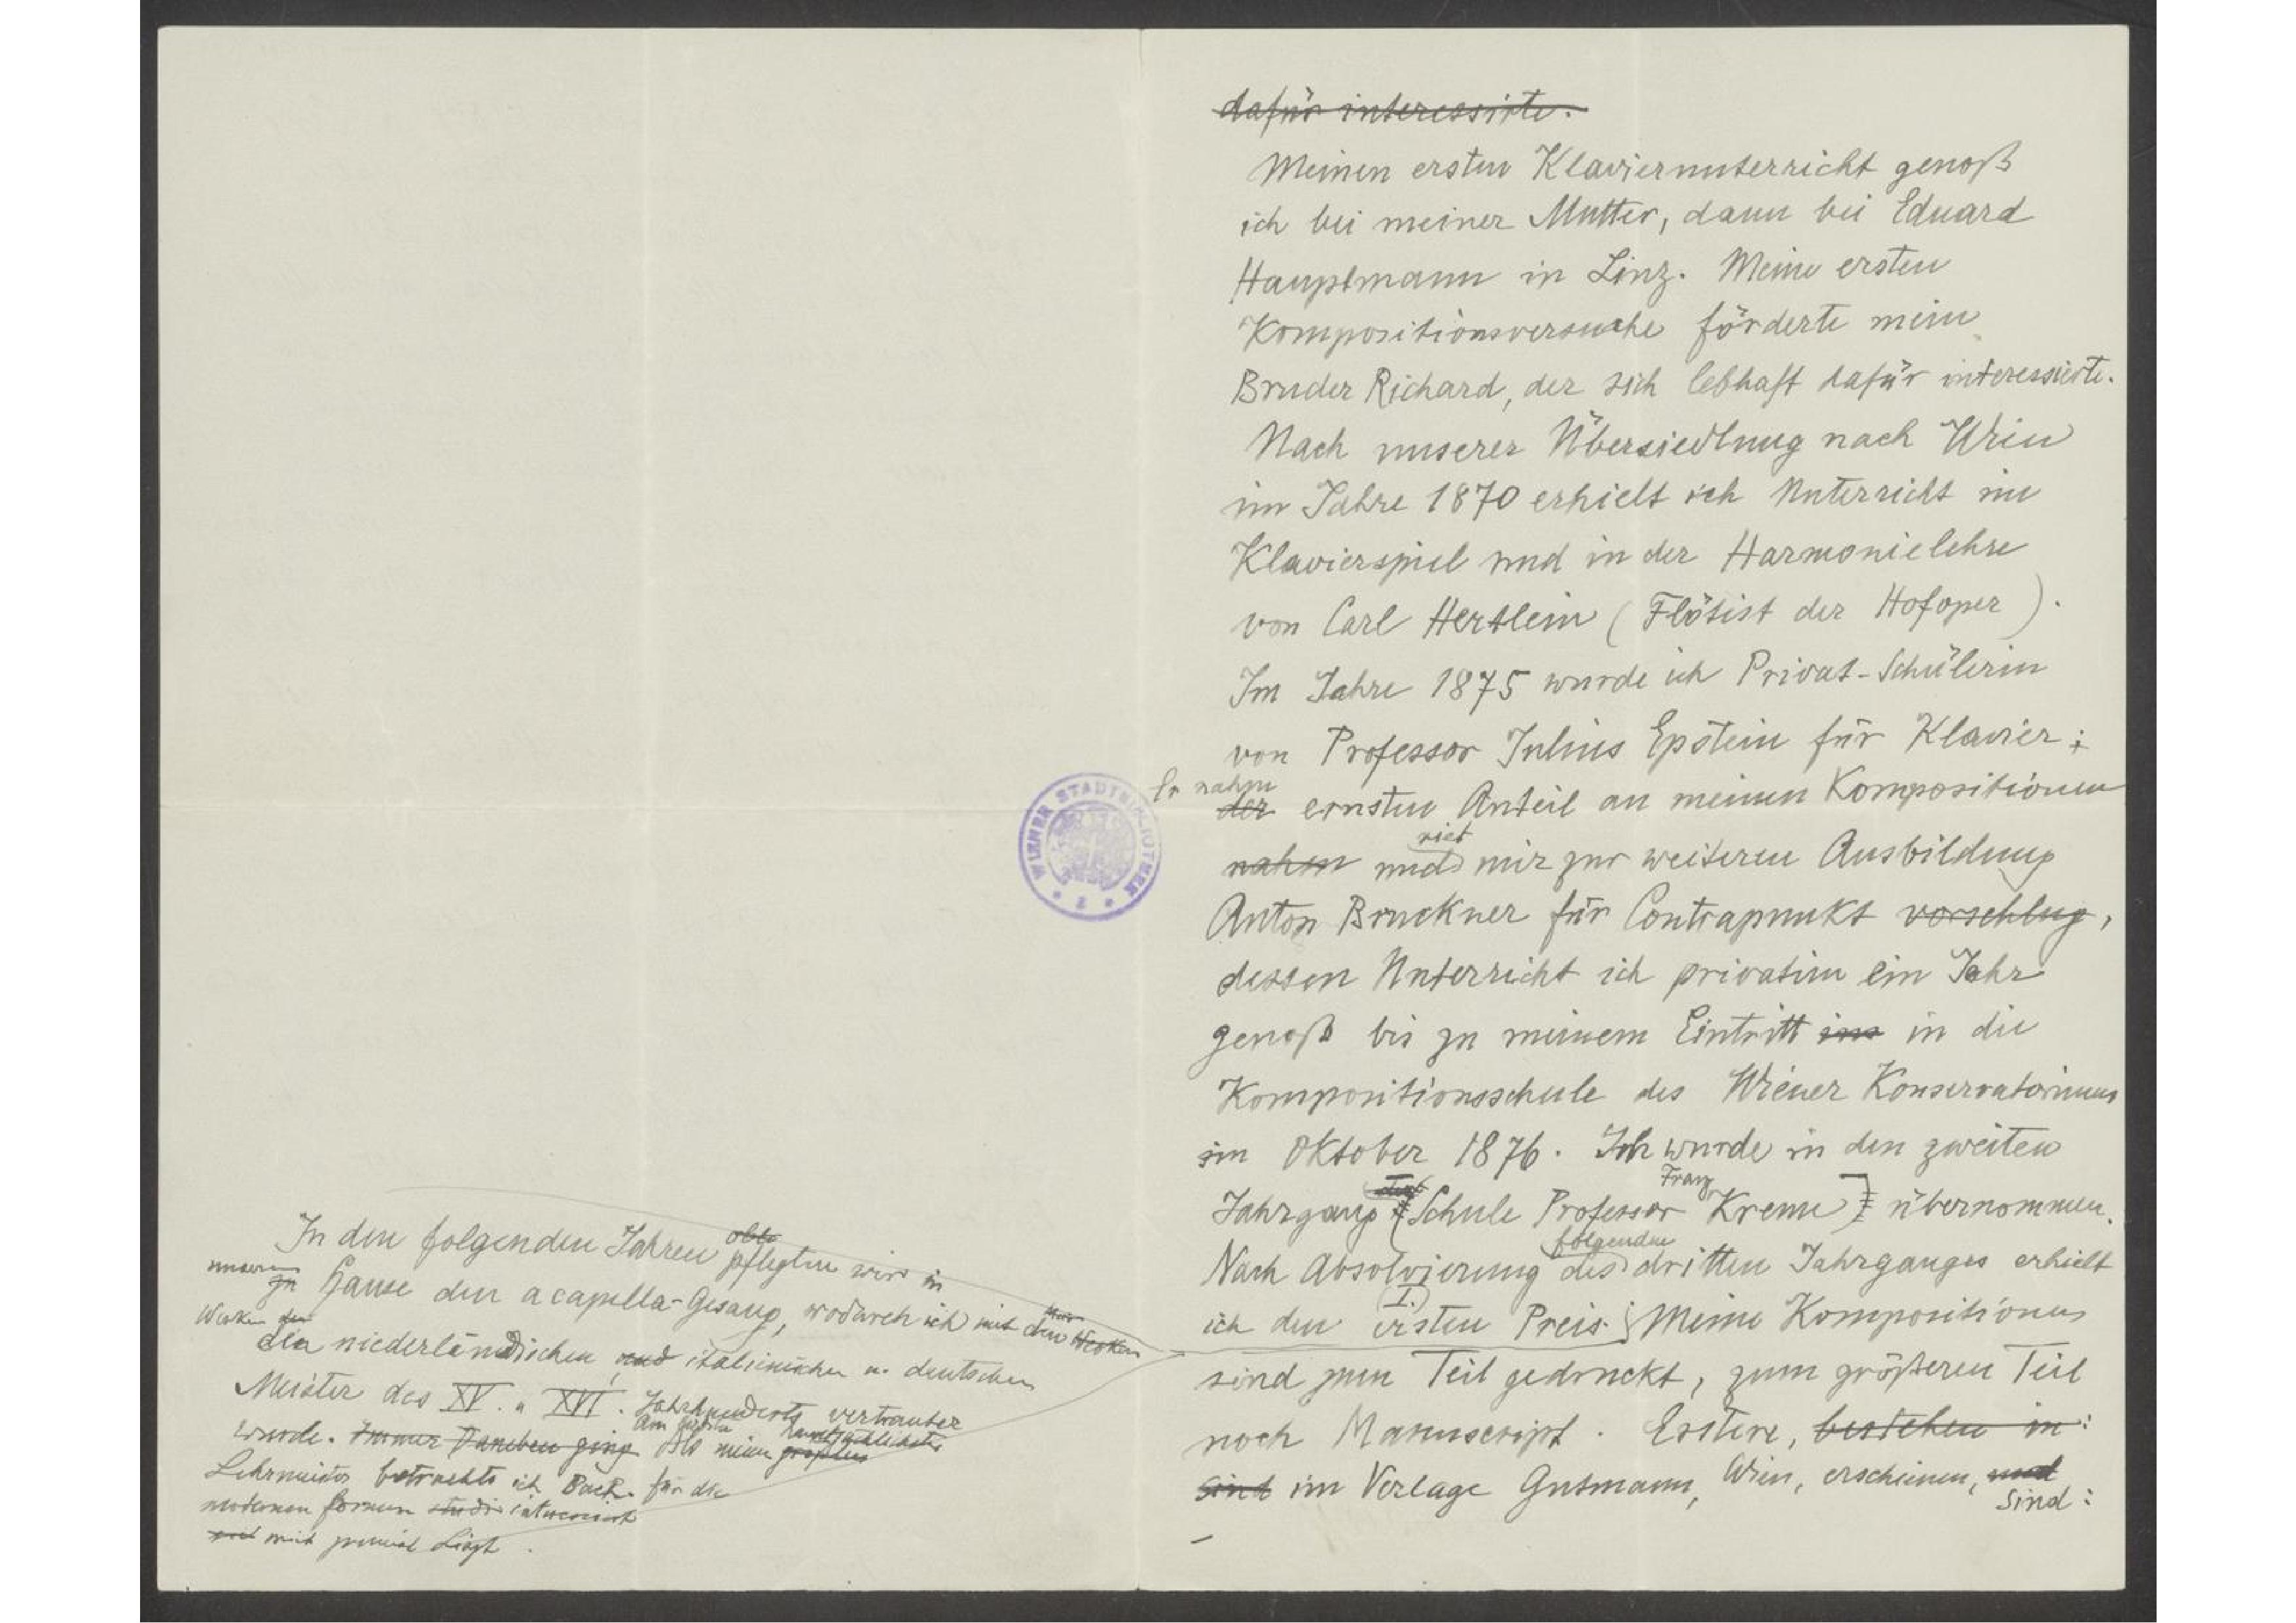 dafür interessirte.
Meinen ersten Klavierunterricht genoß
ich bei meiner Mutter, dann bei Eduard
Hauptmann in Linz. Meine ersten
Kompositionsversuche förderte mein
Bruder Richard, der sich lebhaft dafür interessierte.
Nach unserer Übersiedlung nach Wien
im Jahre 1870 erhielt ich Unterricht im
Klavierspiel und in der Harmonielehre
von Carl Hertlein (Flötist der Hofoper).
Im Jahre 1875 wurde ich Privat-Schülerin
von Professor Julius Epstein für Klavier;
Er nahm
der ernsten Anteil an meinen Kompositionen
riet
nahm und mir zur weiteren Ausbildung
Anton Bruckner für Contrapunkt vorschlug,
dessen Unterricht ich privatim ein Jahr
genoß bis zu meinem Eintritt ins in die
Kompositionsschule des Wiener Konservatoriums
im Oktober 1876. Ich wurde in den zweiten
Franz
Jahrgang (Schule Professor Krenn) übernommen.
folgenden
Nach Absolvierung des dritten Jahrganges erhielt
I.
ich den ersten Preis. Meine Kompositionen
sind zum Teil gedruckt, zum größeren Teil
noch Manuscript. Erstere, bestehen in:
sind im Verlage Gutmann, Wien, erschienen, und
sind:
In den folgenden Jahren pflegten wir in
unserem
zu Hause den a capella-Gesang, wodurch ich mit den Werken
Werken der
die niederländischen, und italienischen u. deutschen
Meister des XV. u XVI. Jahrhunderts vertrauter
hauptsächlichsten
wurde. Immer Daneben ging Als meinen größten
Lehrmeister betrachte ich Bach. für die
modernen formen
mit Liszt.
WIENER STADTBIBLIOTHEK